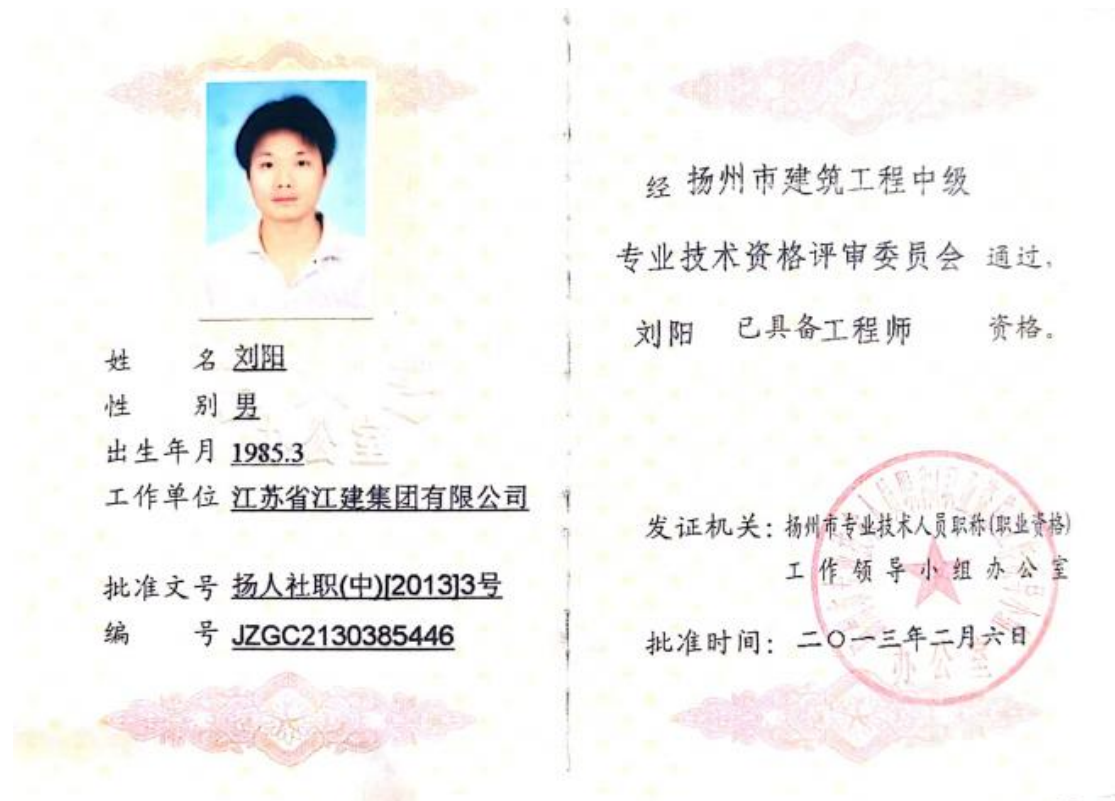 姓 名 刘阳
性 别 男
出生年月 1985.3
工作单位 江苏省江建集团有限公司
批准文号 扬人社职(中)[2013]3号
编 号 JZGC2130385446
经 扬州市建筑工程中级
专业技术资格评审委员会 通过,
刘阳 已具备工程师 资格。
发证机关: 扬州市专业技术人员职称(职业资格)
工作领导小组办公室
批准时间: 二〇一三年二月六日
办公室